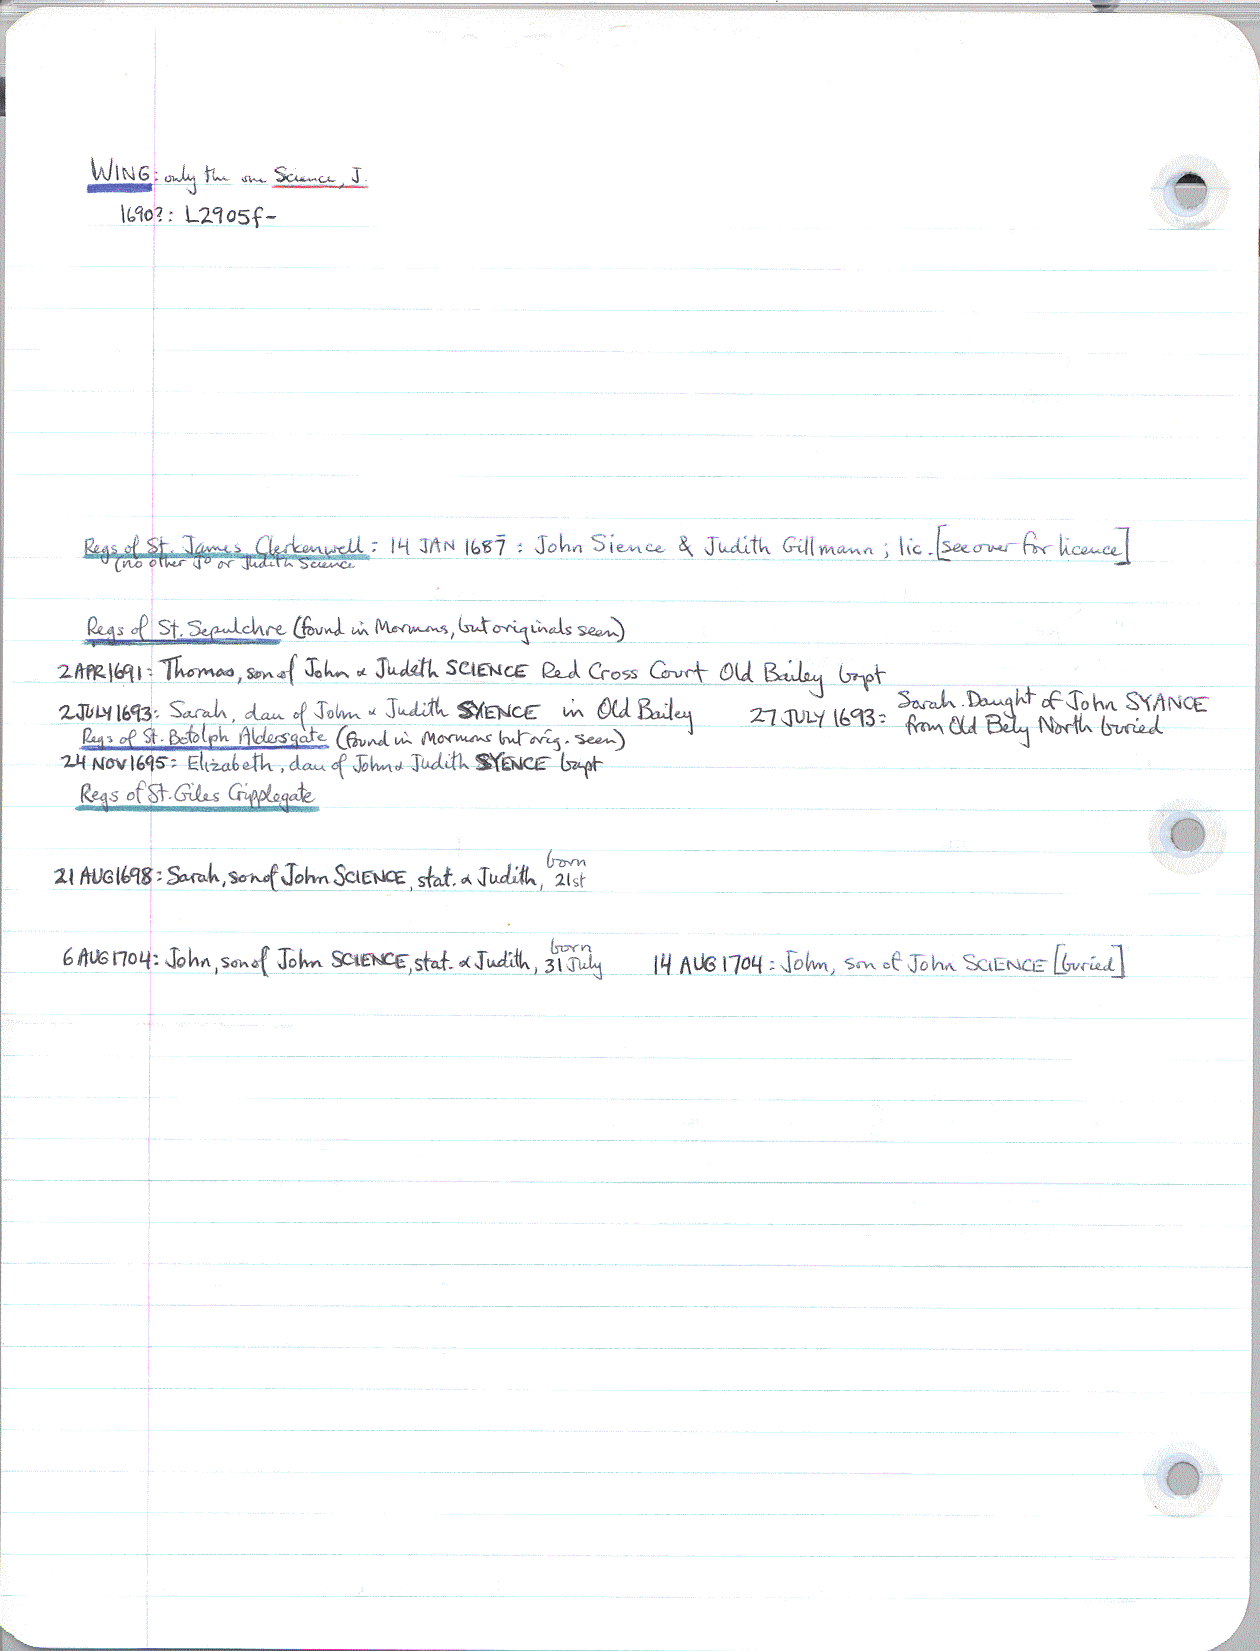 WING: only the one Science, J.
1690?: L2905f-
Regs of St. James, Clerkenwell: 14 JAN 1687: John Sience & Judith Gillmann; lic. [see over for licence]
(no other Jo or Judith Science
Regs of St. Sepulchre (found in Mormons, but originals seen)
2 APR 1691: Thomas, son of John & Judeth SCIENCE Red Cross Court Old Bailey bapt
2 JULY 1693: Sarah, dau of John & Judith SYENCE in Old Bailey 27 JULY 1693: Sarah. Daught of John SYANCE
from Old Bely North buried
Regs of St. Botolph Aldersgate (found in Mormons but orig. seen)
24 NOV 1695: Elizabeth, dau of John & Judith SYENCE bapt
Regs of St. Giles Cripplegate
21 AUG 1698: Sarah, son of John SCIENCE, stat. & Judith, born 21st
6 AUG 1704: John, son of John SCIENCE, stat. & Judith, born 31 July 14 AUG 1704: John, son of John SCIENCE [buried]